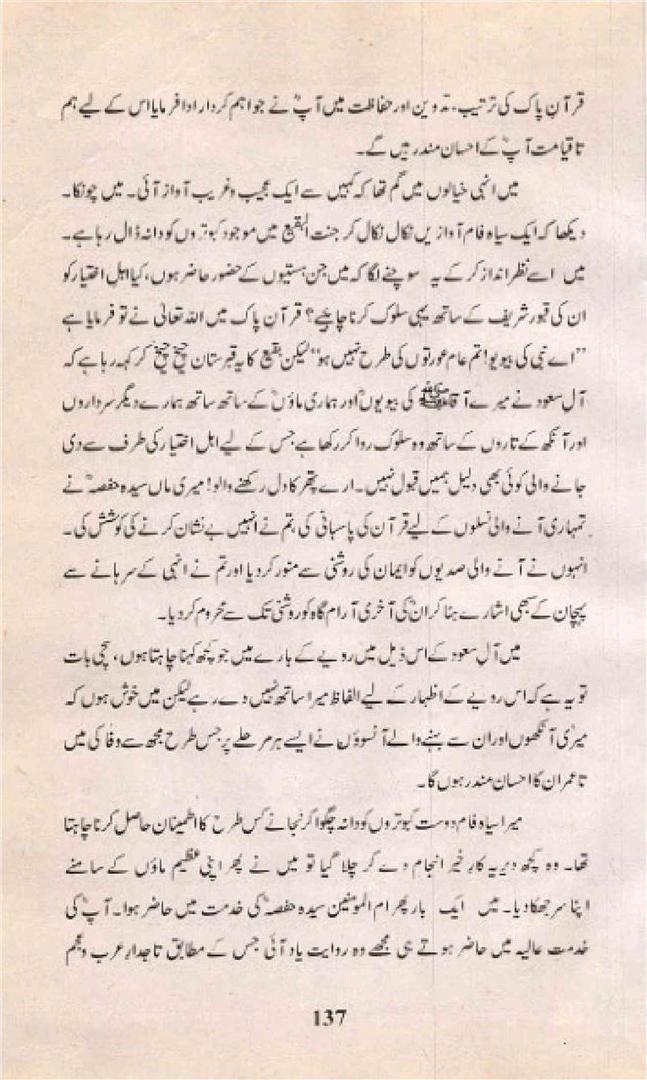 قرآنِ پاک کی ترتیب، تدوین اور حفاظت میں آپؓ نے جو اہم کردار ادا فرمایا اس کے لیے ہم
تا قیامت آپؓ کے احسان مند رہیں گے۔
میں انہی خیالوں میں گم تھا کہ کہیں سے ایک عجیب و غریب آواز آئی۔ میں چونکا۔
دیکھا کہ ایک سیاہ فام آوازیں نکال نکال کر جنت البقیع میں موجود کبوتروں کو دانہ ڈال رہا ہے۔
میں اسے نظر انداز کر کے یہ سوچنے لگا کہ میں جن ہستیوں کے حضور حاضر ہوں، کیا اہلِ اختیار کو
ان کی قبور شریف کے ساتھ یہی سلوک کرنا چاہیے؟ قرآنِ پاک میں اللہ تعالیٰ نے تو فرمایا ہے
”اے نبی کی بیویو! تم عام عورتوں کی طرح نہیں ہو“ لیکن بقیع کا یہ قبرستان چیخ چیخ کر کہہ رہا ہے کہ
آل سعود نے میرے آقا ﷺ کی بیویوںؓ اور ہماری ماؤںؓ کے ساتھ ساتھ ہمارے دیگر سرداروں
اور آنکھ کے تاروں کے ساتھ وہ سلوک روا کر رکھا ہے جس کے لیے اہل اختیار کی طرف سے دی
جانے والی کوئی بھی دلیل ہمیں قبول نہیں۔ ارے پتھر کا دل رکھنے والو! میری ماں سیدہ حفصہؓ نے
تمہاری آنے والی نسلوں کے لیے قرآن کی پاسبانی کی، تم نے انہیں بے نشان کرنے کی کوشش کی۔
انہوں نے آنے والی صدیوں کو ایمان کی روشنی سے منور کر دیا اور تم نے انہی کے سرہانے سے
پہچان کے سبھی اشارے ہٹا کر ان کی آخری آرام گاہ کو روشنی تک سے محروم کر دیا۔
میں آل سعود کے اس ذیل میں رویے کے بارے میں جو کچھ کہنا چاہتا ہوں، سچی بات
تو یہ ہے کہ اس رویے کے اظہار کے لیے الفاظ میرا ساتھ نہیں دے رہے لیکن میں خوش ہوں کہ
میری آنکھوں اور ان سے بہنے والے آنسوؤں نے ایسے ہر مرحلے پر جس طرح مجھ سے وفا کی میں
تا عمر ان کا احسان مند رہوں گا۔
میرا سیاہ فام دوست کبوتروں کو دانہ چگوا کر نجانے کس طرح کا اطمینان حاصل کرنا چاہتا
تھا۔ وہ کچھ دیر یہ کارِ خیر انجام دے کر چلا گیا تو میں نے پھر اپنی عظیم ماؤں کے سامنے
اپنا سر جھکا دیا۔ میں ایک بار پھر ام المومنین سیدہ حفصہؓ کی خدمت میں حاضر ہوا۔ آپؓ کی
خدمت عالیہ میں حاضر ہوتے ہی مجھے وہ روایت یاد آئی جس کے مطابق تاجدارِ عرب و عجم
137